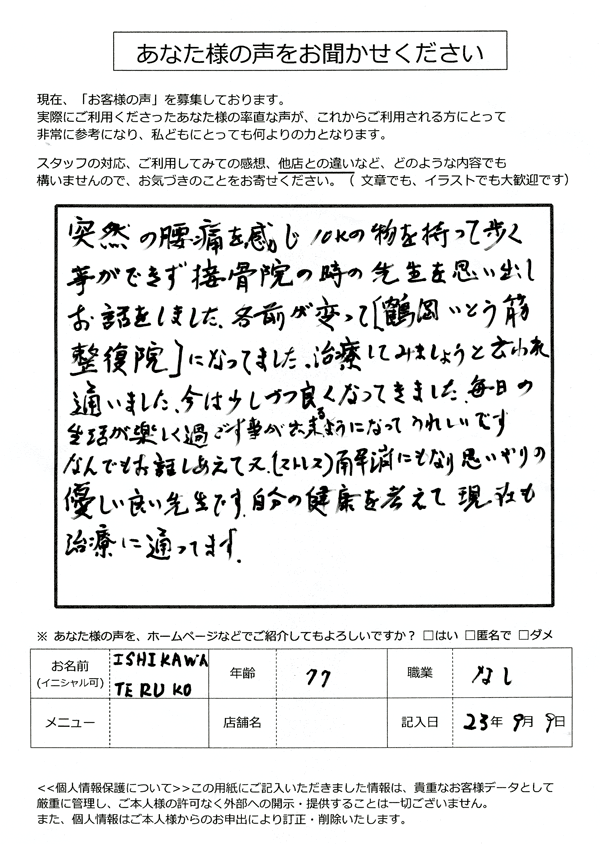 あなた様の声をお聞かせください
現在、「お客様の声」を募集しております。
実際にご利用くださったあなた様の率直な声が、これからご利用される方にとって
非常に参考になり、私どもにとっても何よりの力となります。
スタッフの対応、ご利用してみての感想、他店との違いなど、どのような内容でも
構いませんので、お気づきのことをお寄せください。（ 文章でも、イラストでも大歓迎です）
突然の腰痛を感じ 10Kの物を持って歩く
事ができず 接骨院の時の先生を思い出し
お話をしました。名前が変って［鶴岡いとう筋
整復院］になってました。治療してみましょうと云われ
通いました。今は少しづつ良くなってきました。毎日の
生活が楽しく過ごす事が出来るようになってうれしいです
なんでもお話しあえて又、（ストレス）解消にもなり思いやりの
優しい良い先生です。自分の健康を考えて 現在も
治療に通ってます。
※ あなた様の声を、ホームページなどでご紹介してもよろしいですか？ □はい □匿名で □ダメ
お名前 (イニシャル可) ISHIKAWA TERUKO 年齢 77 職業 なし
メニュー 店舗名 記入日 23年 9月 9日
<<個人情報保護について>>この用紙にご記入いただきました情報は、貴重なお客様データとして
厳重に管理し、ご本人様の許可なく外部への開示・提供することは一切ございません。
また、個人情報はご本人様からのお申出により訂正・削除いたします。